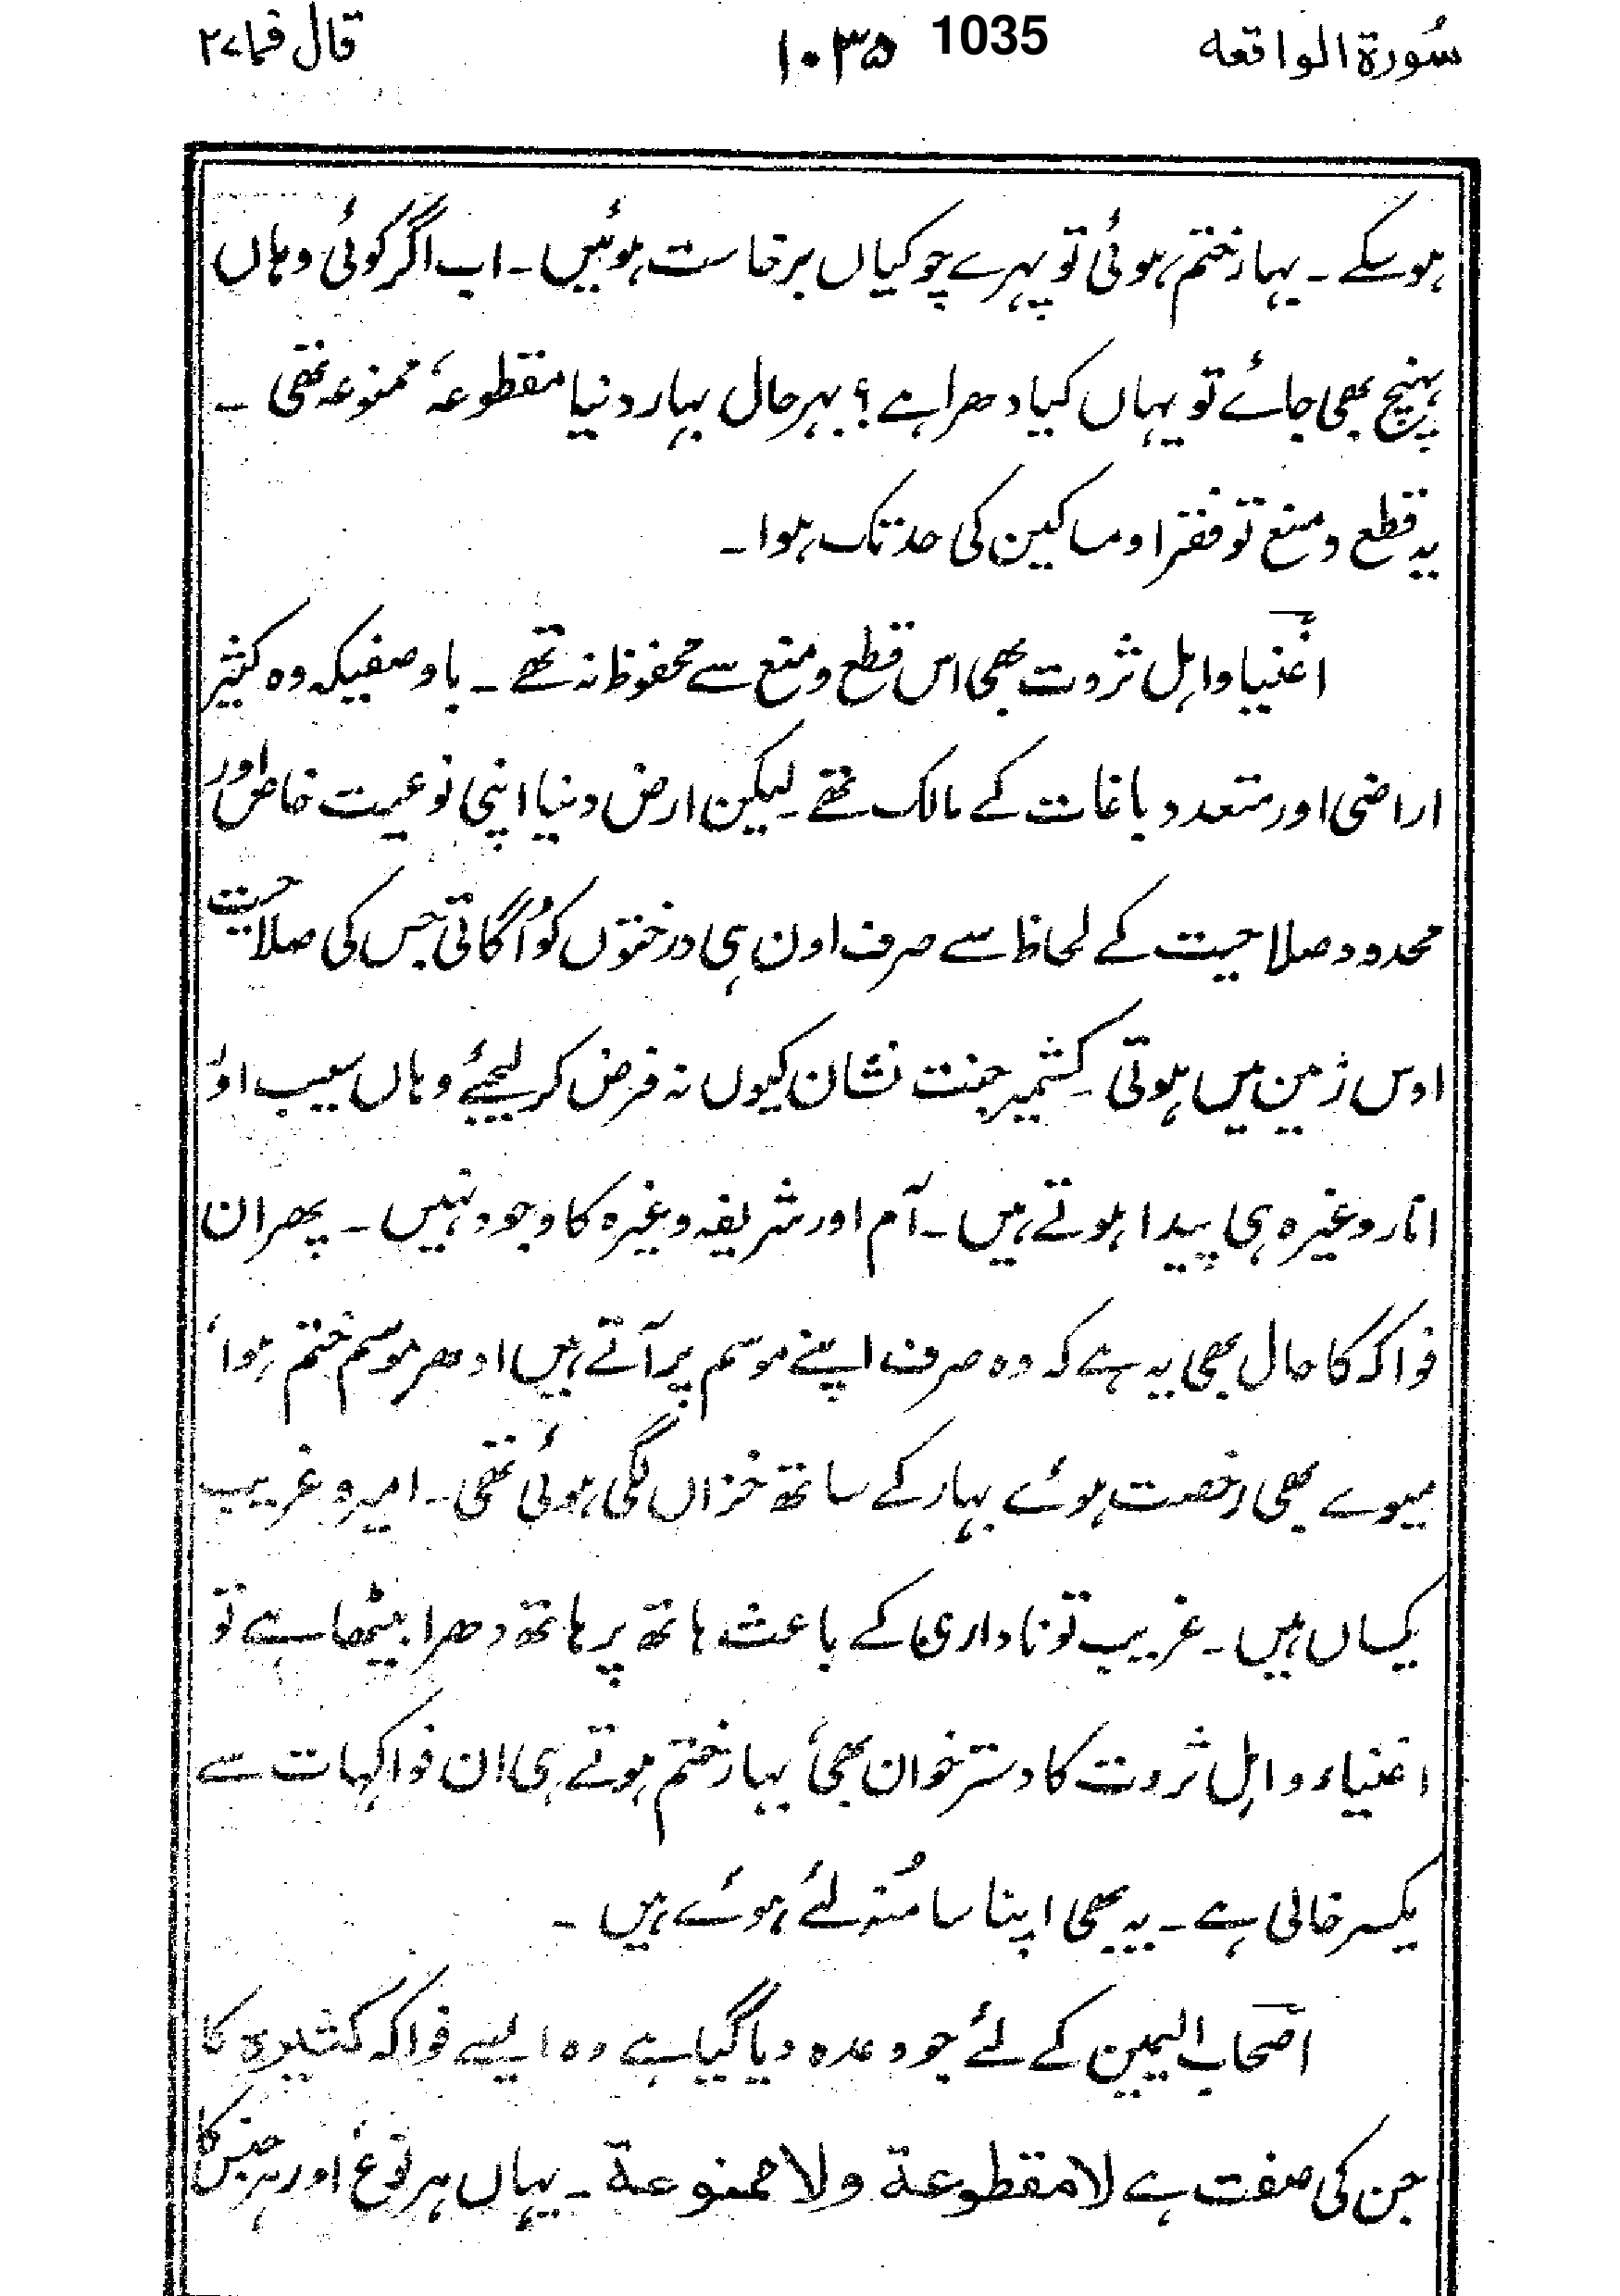 سُورۃ الواقعہ ۱۰۳۵ 1035 قال فما ۲۷
ہوسکے ۔ بہار ختم ہوئی تو پہرے چوکیاں برخاست ہوئیں ۔ اب اگر کوئی وہاں
پہنچ بھی جائے تو یہاں کیا دھرا ہے ؟ بہرحال بہار دنیا مقطوعہ، ممنوعہ تھی ۔
یہ قطع و منع تو فقرا و مساکین کی حد تک ہوا ۔
اغنیا و اہل ثروت بھی اس قطع و منع سے محفوظ نہ تھے ۔ باوصفیکہ وہ کثیر
اراضی اور متعدد باغات کے مالک تھے ۔ لیکن ارض دنیا اپنی نوعیت خاص اور
محدود صلاحیت کے لحاظ سے صرف اون ہی درختوں کو اُگاتی جس کی صلاحیت
اوس زمین میں ہوتی ۔ کشمیر جنت نشان کیوں نہ فرض کر لیجئے وہاں سیب اور
انار وغیرہ ہی پیدا ہوتے ہیں ۔ آم اور شریفہ وغیرہ کا وجود نہیں ۔ پھر ان
فواکہ کا حال بھی یہ ہے کہ وہ صرف اپنے موسم پر آتے ہیں ادھر موسم ختم ہوا،
میوے بھی رخصت ہوئے بہار کے ساتھ خزاں لگی ہوئی تھی ۔ امیر و غریب
یکساں ہیں ۔ غریب تو ناداری کے باعث ہاتھ پر ہاتھ دھرا بیٹھا ہے تو
اغنیاء و اہل ثروت کا دسترخوان بھی، بہار ختم ہوتے ہی ان فواکہات سے
یکسر خالی ہے ۔ یہ بھی اپنا سا مُنہ لئے ہوئے ہیں ۔
اصحاب الیمین کے لئے جو وعدہ دیا گیا ہے وہ ایسے فواکہ کثیرۃ کا
جن کی صفت ہے لا مقطوعة ولا ممنوعة ۔ یہاں ہر نوع، اور ہر جنس کا